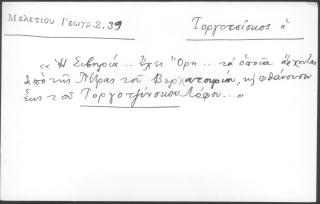 Μελετίου Γεωγρ. 2, 39
Γοργοτσίσκος ὁ
« Ἡ Σιβηρία .. ἔχει Ὄρη ... τὰ ὁποῖα ἄρχονται
ἀπὸ τῆς Πέτρας τοῦ Βερχατουρίου, κὴ φθάνουσιν
ἕως τοῦ Γοργοτζίνσκου Λόφου ... »